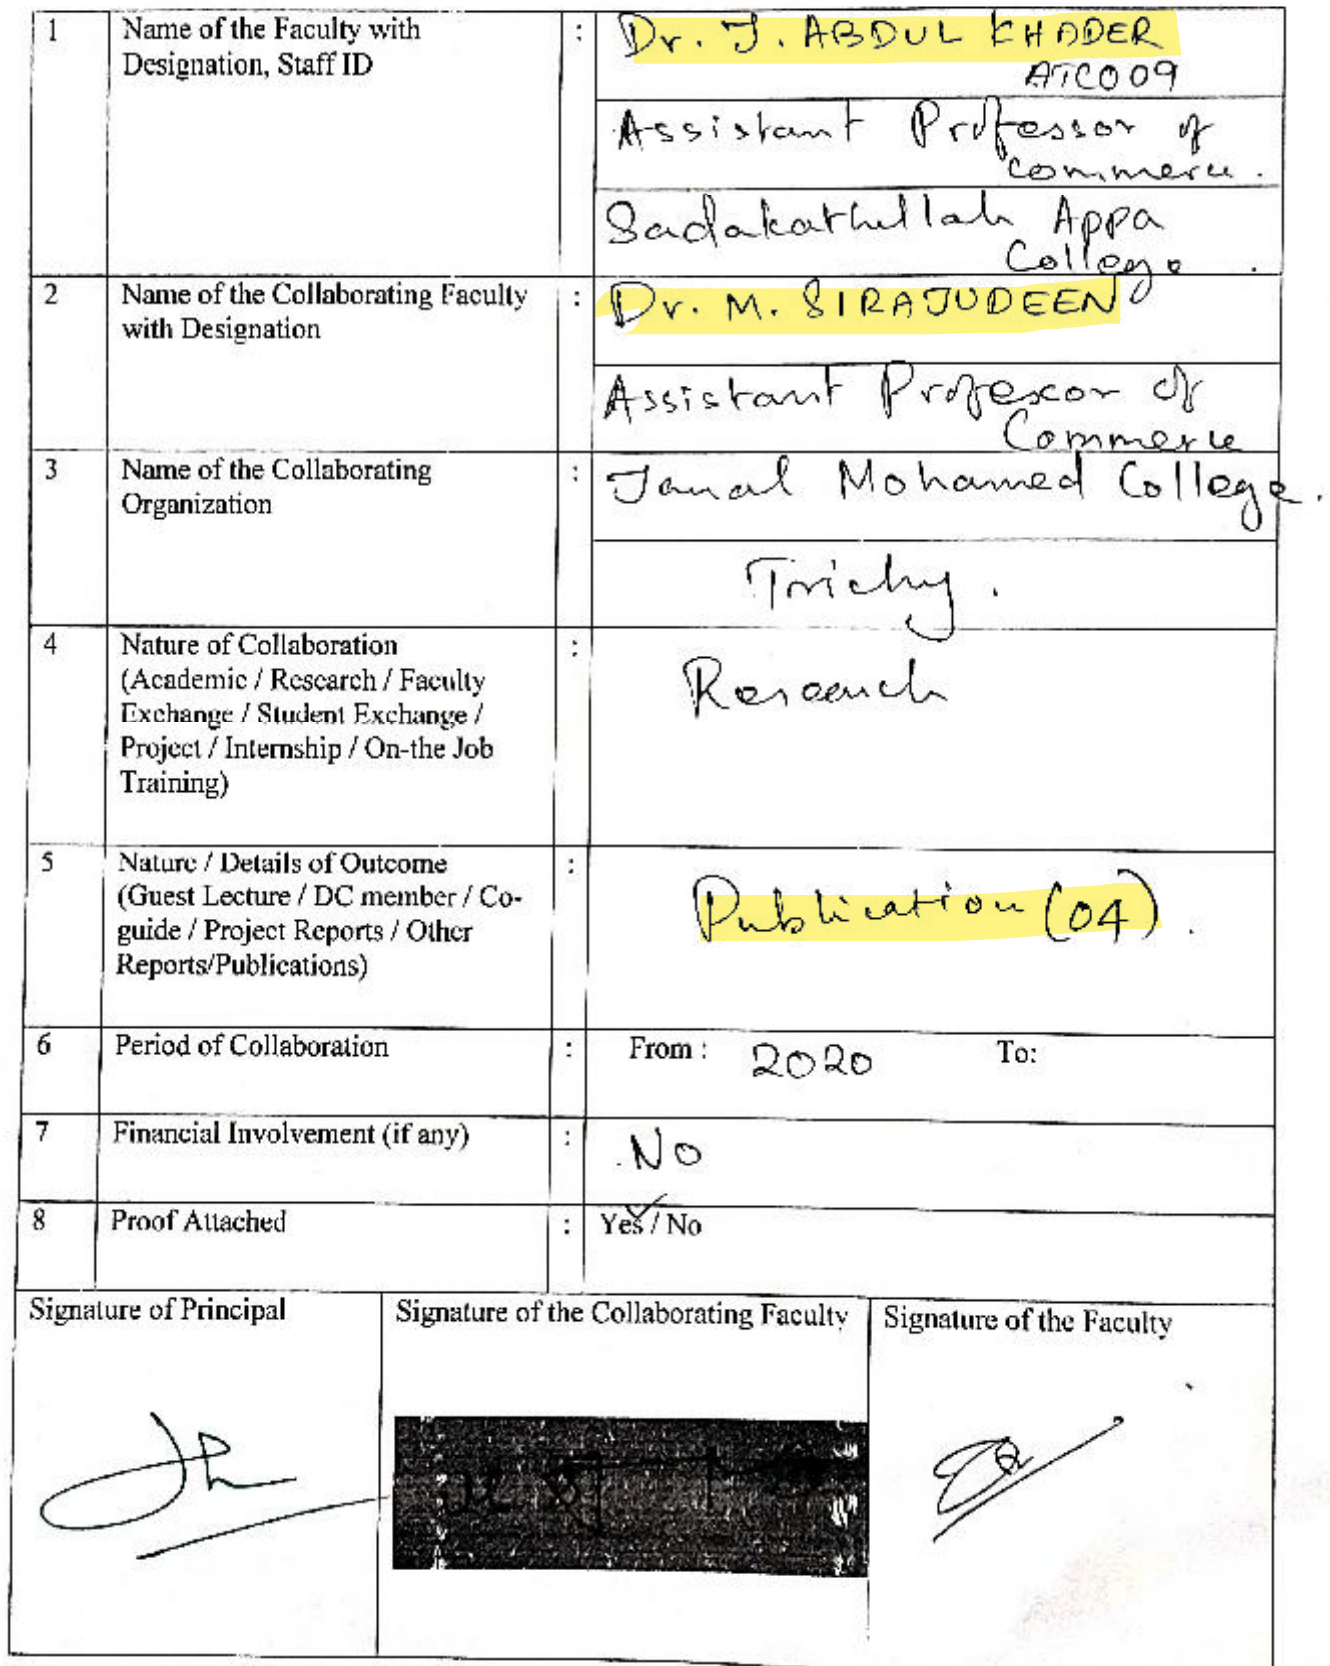 1 Name of the Faculty with : Dr. J. ABDUL KHADER
Designation, Staff ID ATCO09
Assistant Professor of
Commerce.
Sadakathullah Appa
College.
2 Name of the Collaborating Faculty : Dr. M. SIRAJUDEEN
with Designation
Assistant Professor of
Commerce
3 Name of the Collaborating : Jamal Mohamed College.
Organization
Trichy.
4 Nature of Collaboration :
(Academic / Research / Faculty Research
Exchange / Student Exchange /
Project / Internship / On-the Job
Training)
5 Nature / Details of Outcome :
(Guest Lecture / DC member / Co- Publication (04).
guide / Project Reports / Other
Reports/Publications)
6 Period of Collaboration : From : 2020 To:
7 Financial Involvement (if any) : No
8 Proof Attached : Yes / No
Signature of Principal Signature of the Collaborating Faculty Signature of the Faculty